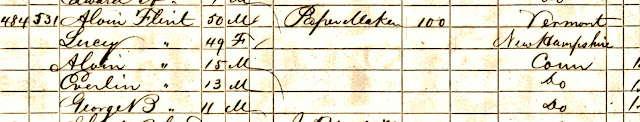 484 531 Alvin Flint 50 M Paper Maker 100 Vermont
Lucy " 49 F New Hampshire
Alvin " 15 M Conn
Everlin " 13 M Do
George B " 11 M Do